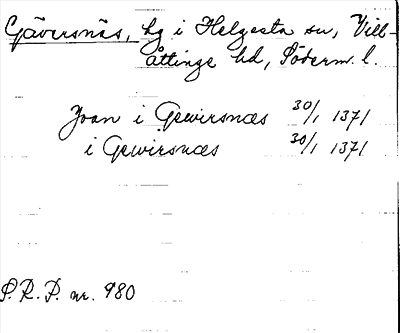 Gäversnäs, hg i Helgesta sn, Vill-
åttinge hd, Söderm. l.
Joan i Gewirsnæs 30/1 1371
i Gewirsnæs 30/1 1371
S.R.P. nr. 980